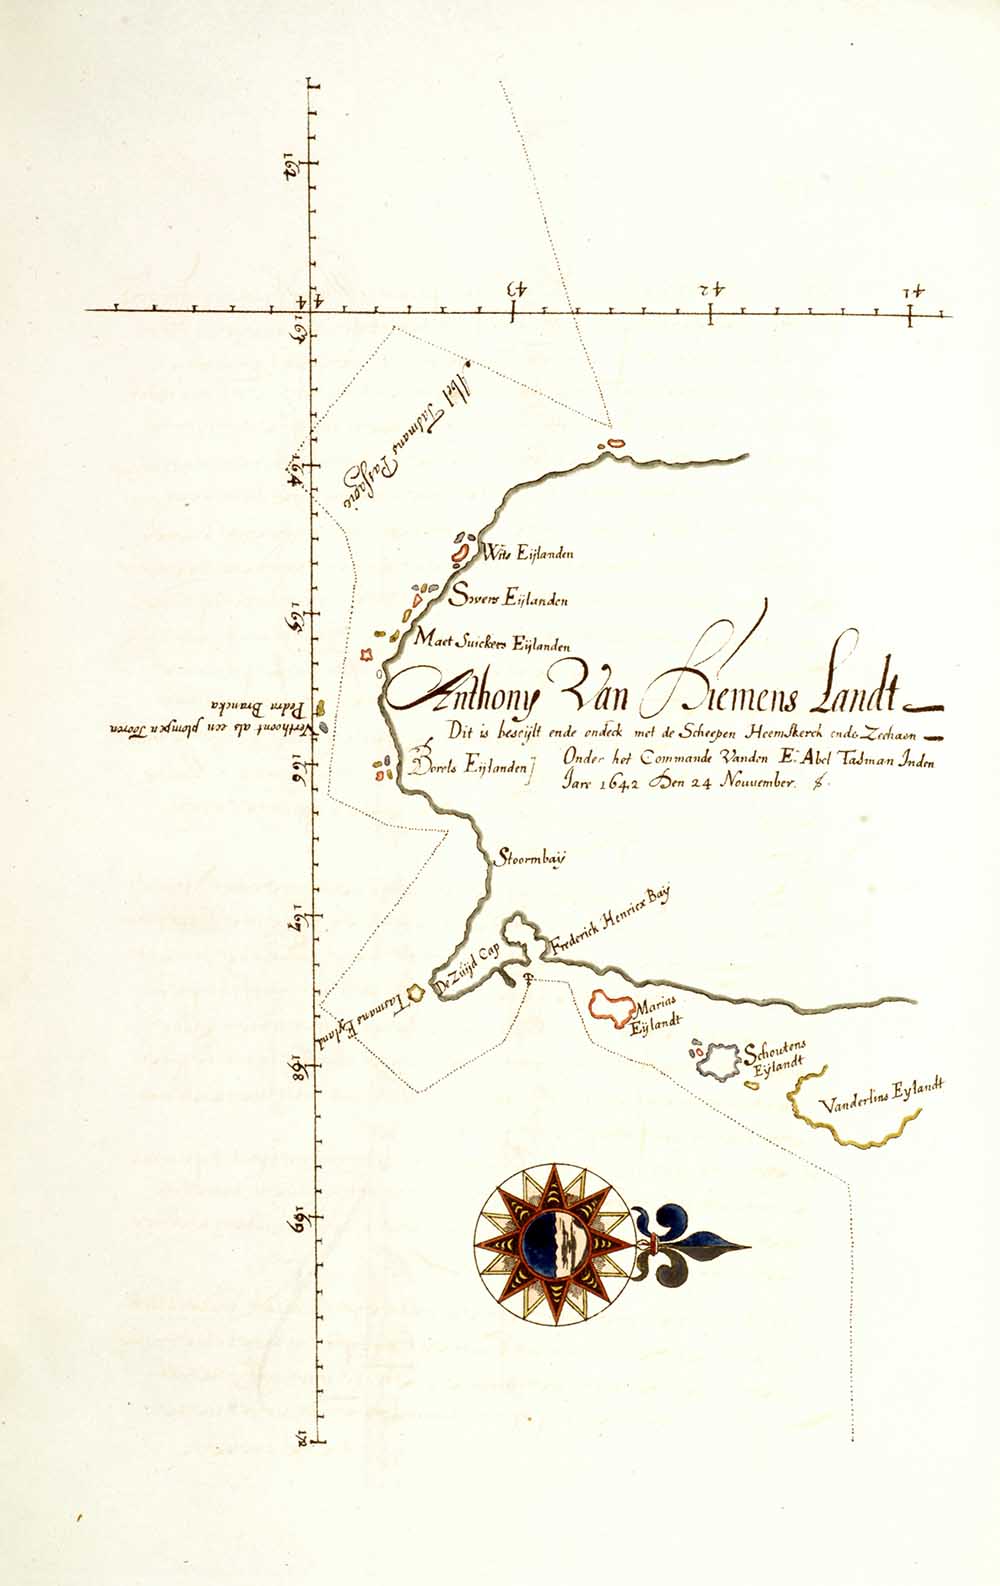 162
44
43
42
41
163
Abel Tasmans Passagie
164
Wits Eijlanden
Swers Eijlanden
165
Maet Suickers Eijlanden
Anthony Van Diemens Landt
Dit is beseijlt ende ondeck met de Scheepen Heemskerck ende Zeehaen
Onder het Commande Vanden E. Abel Tasman Inden
Jare 1642 Den 24 Nouuember.
Pedra Brancka
Verthoont als een plompen Tooren
166
Borels Eijlanden
Stoormbaij
167
Frederick Henricx Baij
De Zuijd Cap
Tasmans Eyland
Marias
Eijlandt
168
Schoutens
Eijlandt
Vanderlins Eylandt
169
172